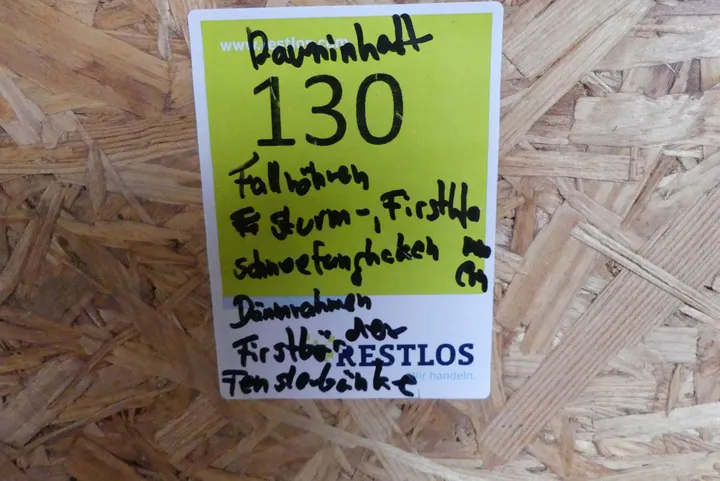 www.restlos.com
Rauminhalt
130
Fallröhren
Sturm-, Firstkla
schneefanghaken
Dämmrahmen
Firstbänder
RESTLOS
Wir handeln.
Fensterbänke